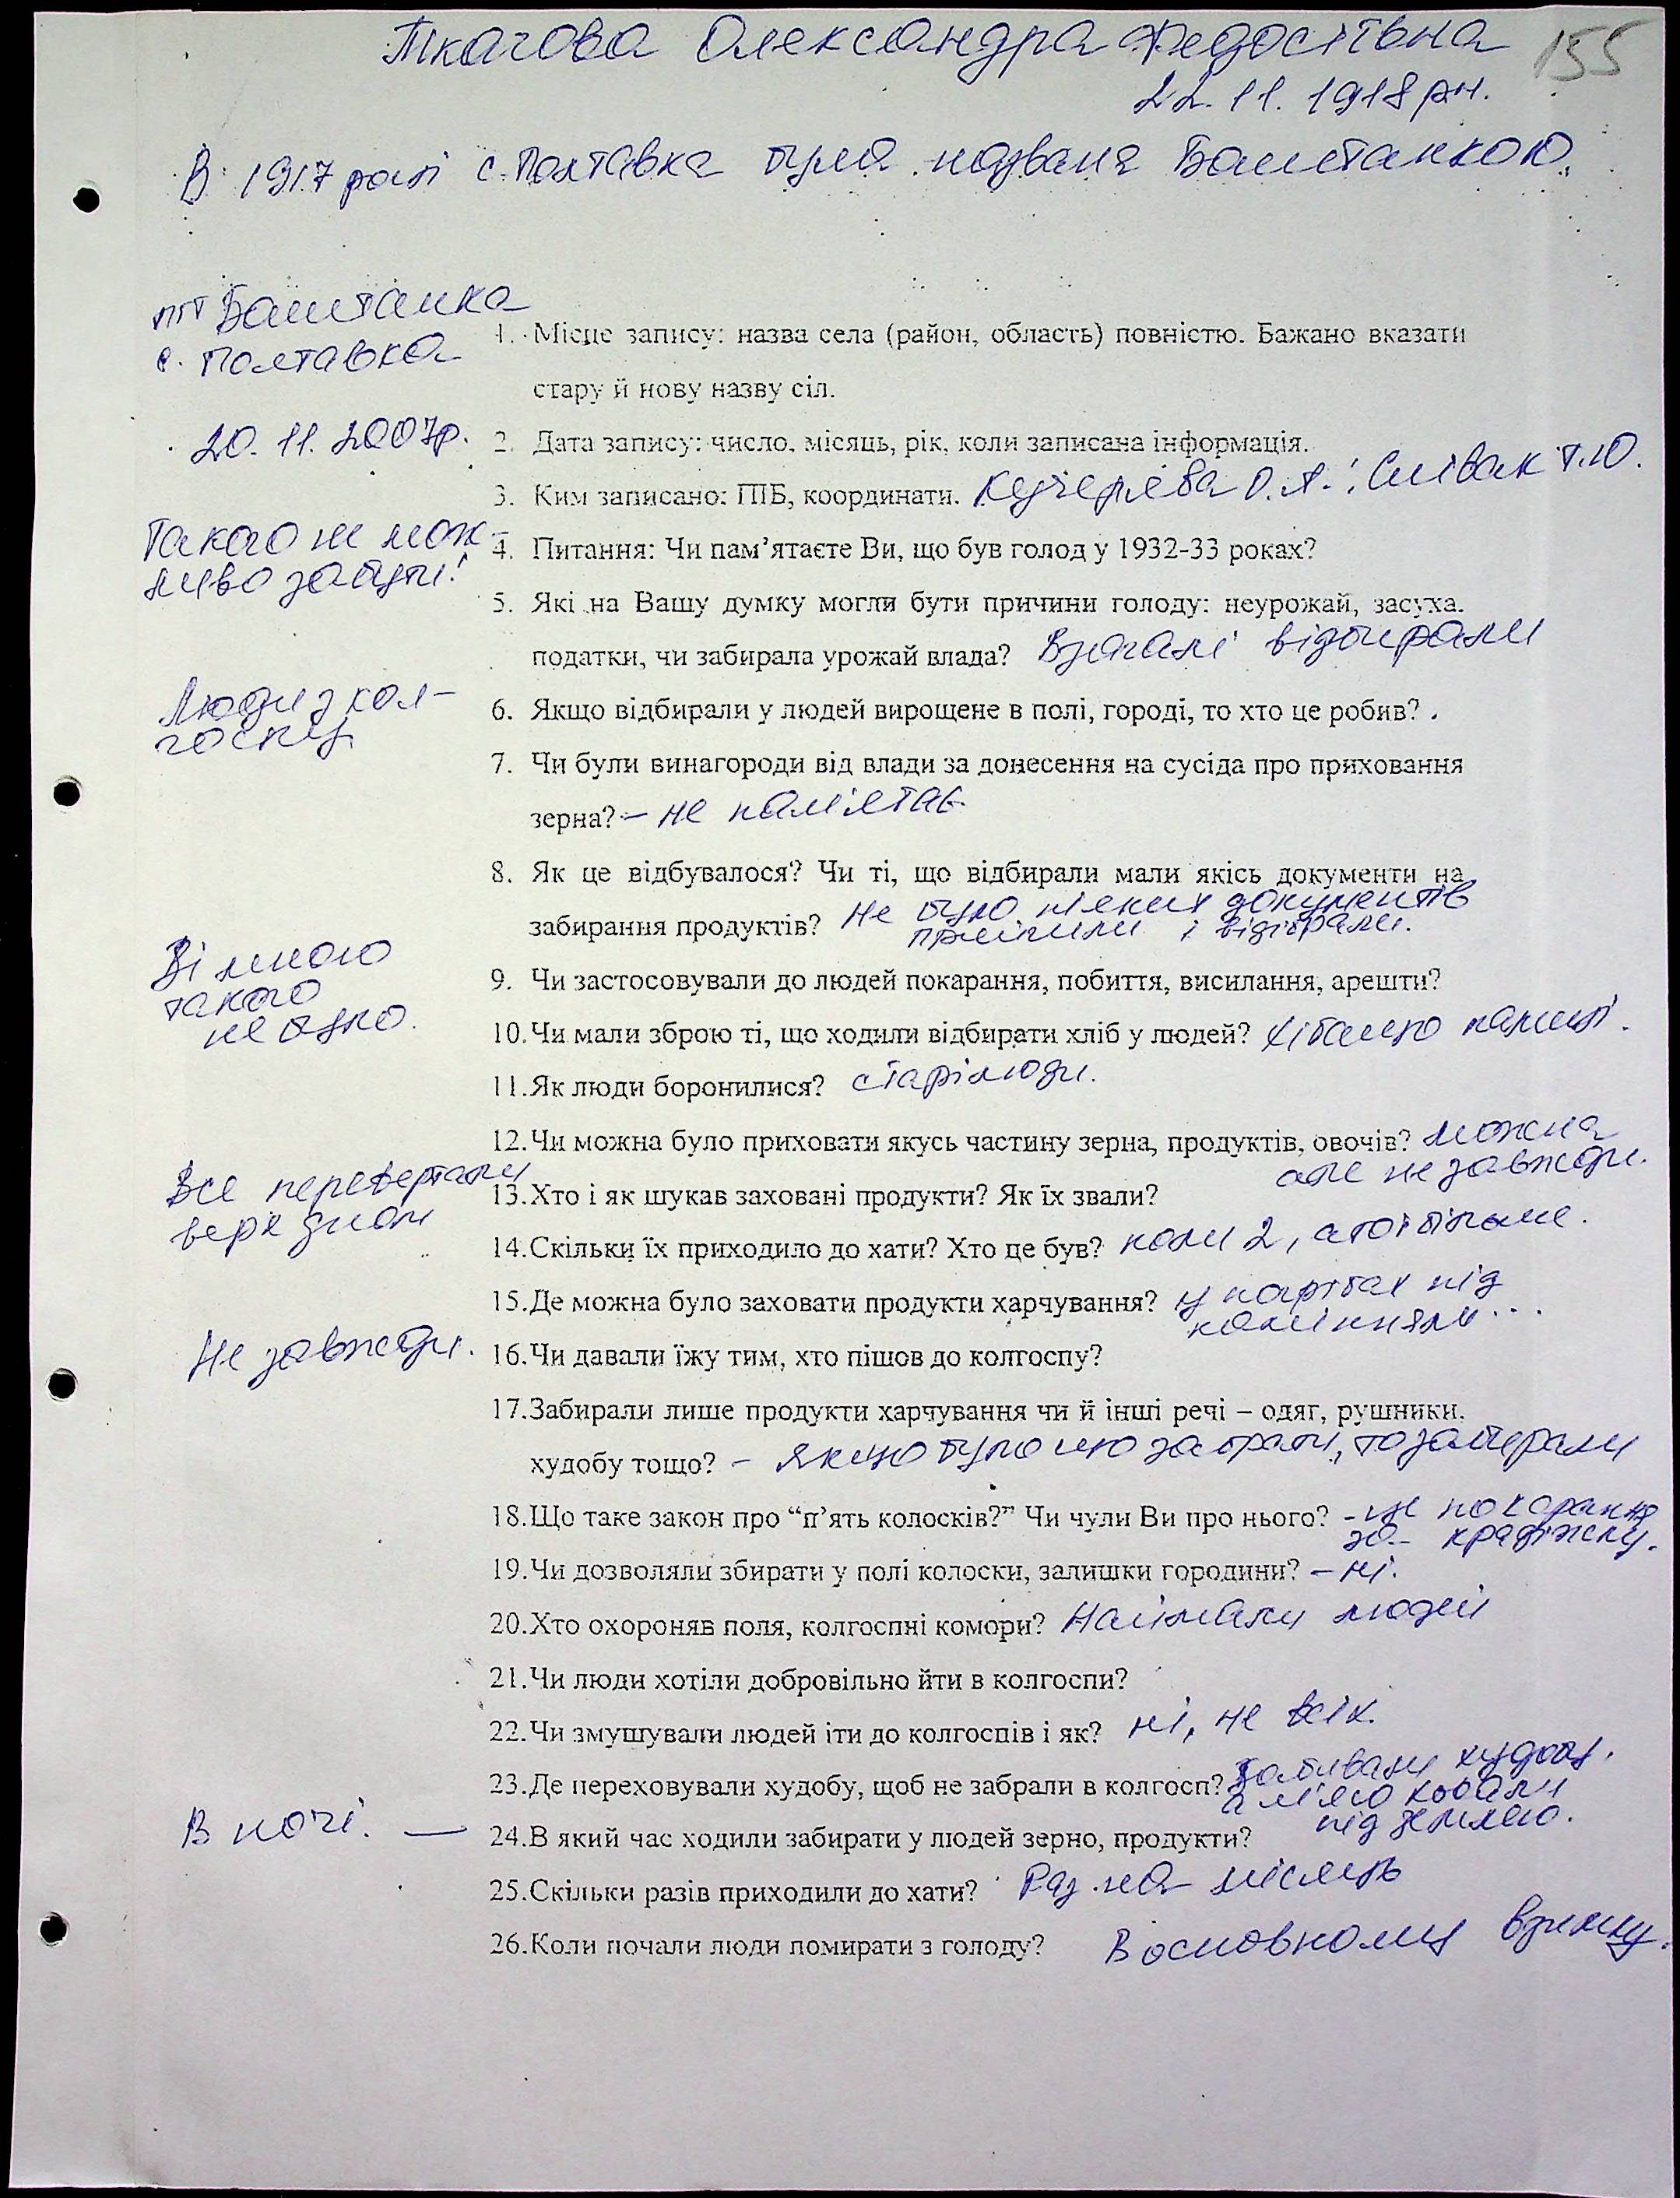 Ткачова Олександра Федосіївна 155
22.11.1918 р.н.
В 1917 році с. Полтавка була названа Баштанкою.
пгт Баштанка
с. Полтавка
1. Місце запису: назва села (район, область) повністю. Бажано вказати
стару й нову назву сіл.
20.11.2007р. 2. Дата запису: число, місяць, рік, коли записана інформація.
3. Ким записано: ПІБ, координати. О.А.; Співак Т.Ю.
Такого не мож-
ливо забути!
4. Питання: Чи пам’ятаєте Ви, що був голод у 1932-33 роках?
5. Які на Вашу думку могли бути причини голоду: неурожай, засуха,
податки, чи забирала урожай влада? Взагалі відбирали
Люди з кол-
госпу
6. Якщо відбирали у людей вирощене в полі, городі, то хто це робив?
7. Чи були винагороди від влади за донесення на сусіда про приховання
зерна? – не пам'ятає
8. Як це відбувалося? Чи ті, що відбирали мали якісь документи на
забирання продуктів? Не було ніяких документів
прийшли і відібрали.
Зі мною
такого
не було.
9. Чи застосовували до людей покарання, побиття, висилання, арешти?
10. Чи мали зброю ті, що ходили відбирати хліб у людей? хібащо палиці.
11. Як люди боронилися? старі люди.
12. Чи можна було приховати якусь частину зерна, продуктів, овочів? можна
але не завжди.
Все перевертали
верх дном
13. Хто і як шукав заховані продукти? Як їх звали?
14. Скільки їх приходило до хати? Хто це був? коли 2, а то і більше.
15. Де можна було заховати продукти харчування? у погрібах під
камінням...
Не завжди. 16. Чи давали їжу тим, хто пішов до колгоспу?
17. Забирали лише продукти харчування чи й інші речі – одяг, рушники,
худобу тощо? – якщо було що забрати, то забирали
18. Що таке закон про “п’ять колосків?” Чи чули Ви про нього? - це покарання
за крадіжку.
19. Чи дозволяли збирати у полі колоски, залишки городини? – ні.
20. Хто охороняв поля, колгоспні комори? Наймали людей
21. Чи люди хотіли добровільно йти в колгоспи?
22. Чи змушували людей іти до колгоспів і як? ні, не всіх.
23. Де переховували худобу, щоб не забрали в колгосп? Забивали худобу,
а м'ясо ховали
під землею.
В ночі. — 24. В який час ходили забирати у людей зерно, продукти?
25. Скільки разів приходили до хати? Раз на місяць
26. Коли почали люди помирати з голоду? В основному взимку.